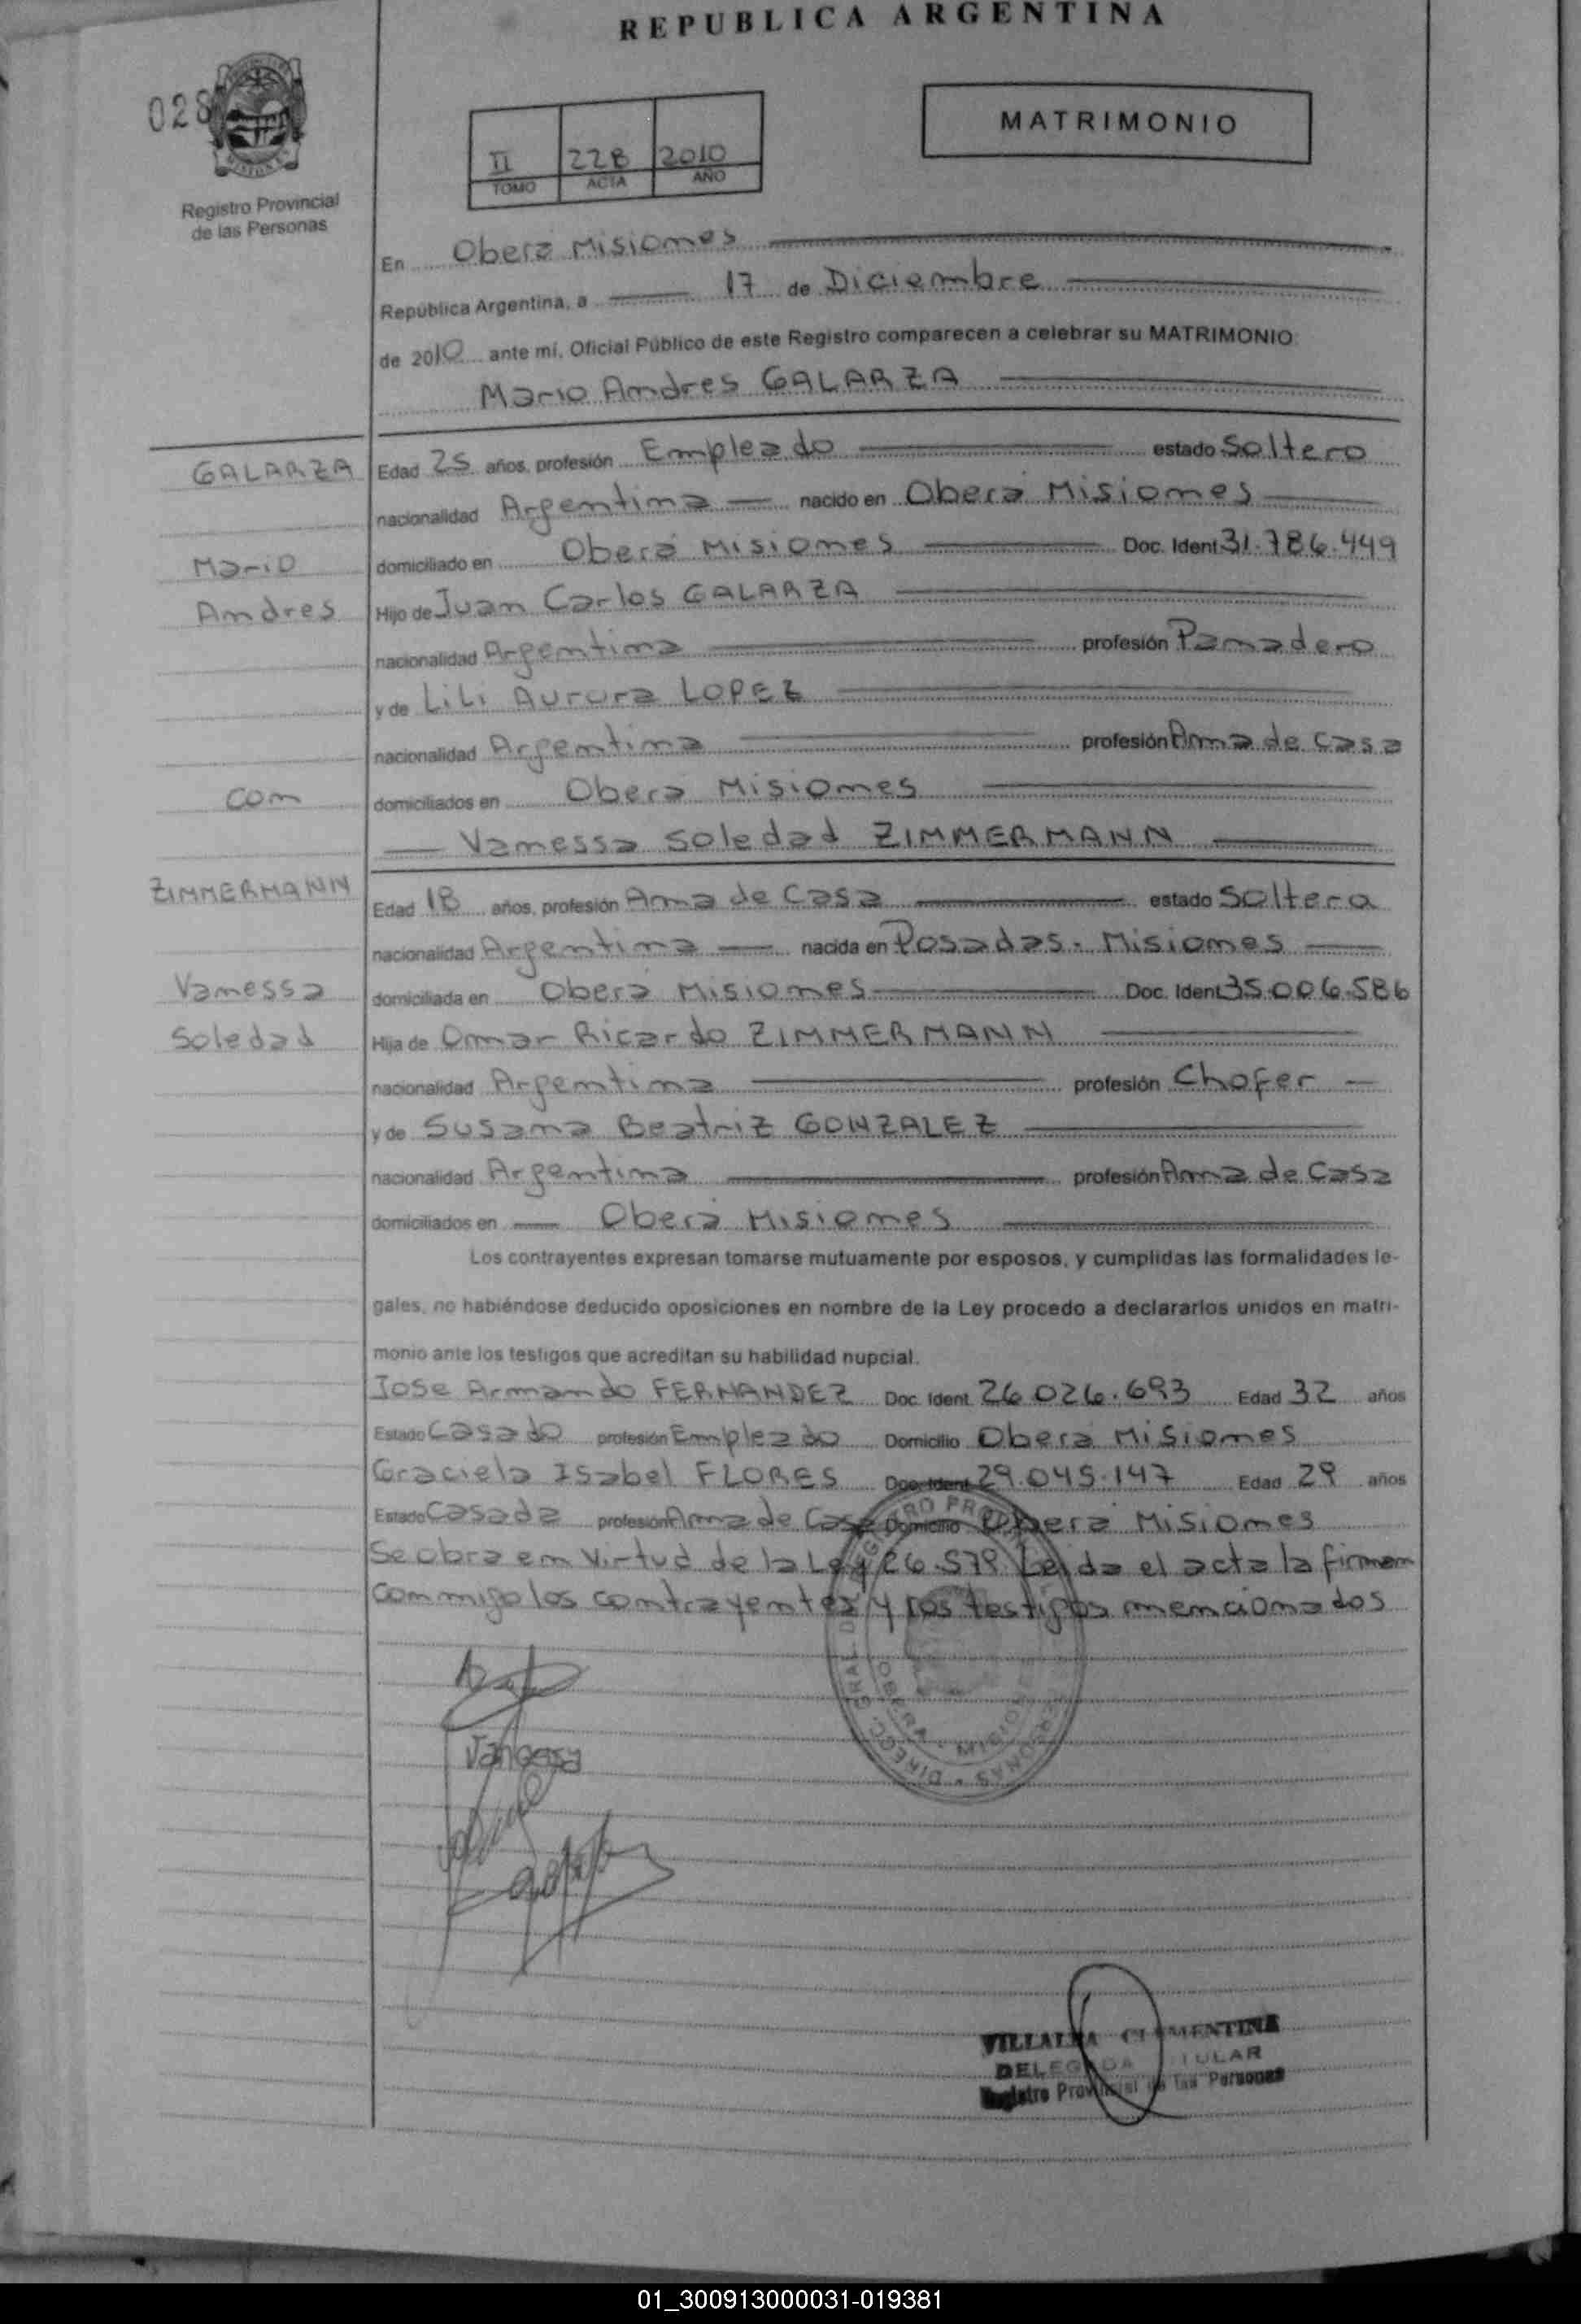 REPUBLICA ARGENTINA
028
MATRIMONIO
II 228 2010
TOMO ACTA AÑO
Registro Provincial
de las Personas
En Oberá Misiones
República Argentina, a 17 de Diciembre
de 2010 ante mí, Oficial Público de este Registro comparecen a celebrar su MATRIMONIO:
Mario Andres GALARZA
GALARZA
Edad 25 años, profesión Empleado estado Soltero
nacionalidad Argentina nacido en Oberá Misiones
Mario
domiciliado en Oberá Misiones Doc. Ident 31.786.449
Andres
Hijo de Juan Carlos GALARZA
nacionalidad Argentina profesión Panadero
y de Lili Aurora LOPEZ
nacionalidad Argentina profesión Ama de Casa
con
domiciliados en Oberá Misiones
Vanessa Soledad ZIMMERMANN
ZIMMERMANN
Edad 18 años, profesión Ama de Casa estado Soltera
nacionalidad Argentina nacida en Posadas - Misiones
Vanessa
domiciliada en Oberá Misiones Doc. Ident 35.006.586
Soledad
Hija de Omar Ricardo ZIMMERMANN
nacionalidad Argentina profesión Chofer
y de Susana Beatriz GONZALEZ
nacionalidad Argentina profesión Ama de Casa
domiciliados en Oberá Misiones
Los contrayentes expresan tomarse mutuamente por esposos, y cumplidas las formalidades le-
gales, no habiéndose deducido oposiciones en nombre de la Ley procedo a declararlos unidos en matri-
monio ante los testigos que acreditan su habilidad nupcial.
Jose Armando FERNANDEZ Doc. Ident. 26.026.693 Edad 32 años
Estado Casado profesión Empleado Domicilio Oberá Misiones
Graciela Isabel FLORES Doc. Ident. 29.045.147 Edad 29 años
Estado Casada profesión Ama de Casa Domicilio Oberá Misiones
Se obra en Virtud de la Ley 26.579. Leida el acta la firman
conmigo los contrayentes y los testigos mencionados
Vanessa
OBERA - MISIONES
VILLALBA CLEMENTINA
DELEGADA TITULAR
Registro Provincial de las Personas
01_300913000031-019381